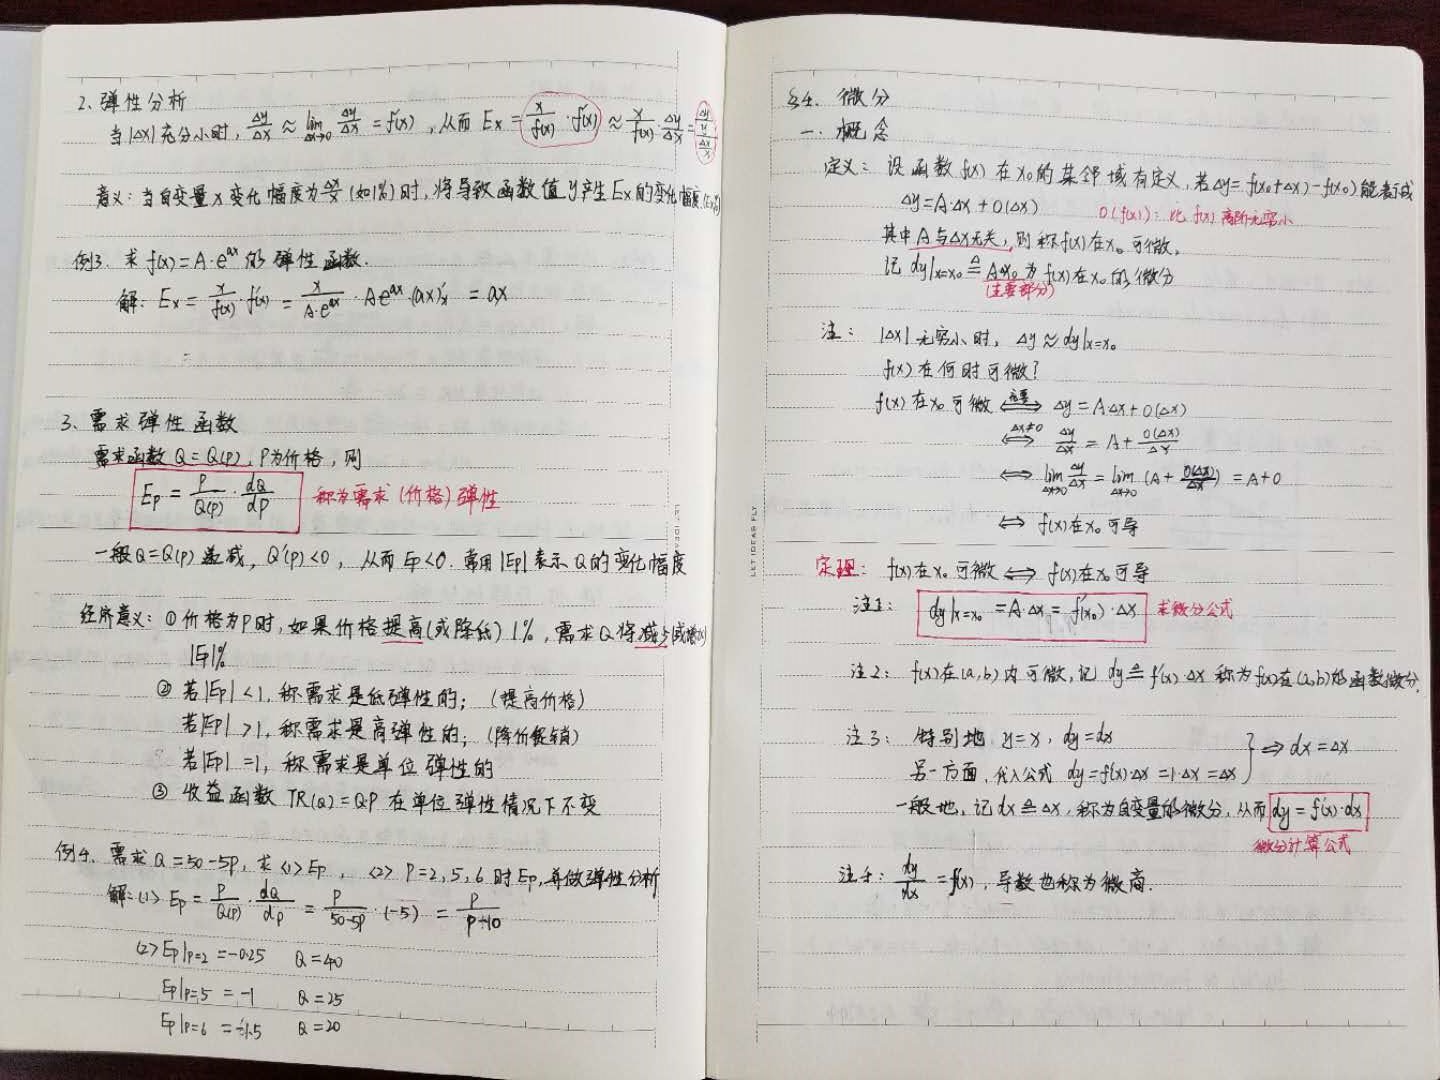 2、弹性分析
当|Δx|充分小时, Δy/Δx ≈ lim_{Δx→0} Δy/Δx = f'(x) , 从而 Ex = x/f(x) · f'(x) ≈ x/f(x) · Δy/Δx = (Δy/y)/(Δx/x)
意义: 当自变量x变化幅度为Δx/x (如1%)时, 将导致函数值y产生Ex的变化幅度
例3. 求 f(x) = A·e^{ax} 的弹性函数.
解: Ex = x/f(x) · f'(x) = x/(A·e^{ax}) · Ae^{ax}·(ax)'x = ax
3、需求弹性函数
需求函数 Q = Q(p), P为价格, 则
Ep = P/Q(p) · dQ/dp 称为需求(价格)弹性
一般Q=Q(p)递减, Q'(p)<0 , 从而 Ep<0. 常用|Ep|表示Q的变化幅度
经济意义: ① 价格为P时, 如果价格提高(或降低) 1%, 需求Q将减少(或增加)
|Ep|%
② 若|Ep|<1, 称需求是低弹性的; (提高价格)
若|Ep|>1, 称需求是高弹性的; (降价促销)
若|Ep|=1, 称需求是单位弹性的
③ 收益函数 TR(Q) = Q·P 在单位弹性情况下不变
例4. 需求 Q=50-5P, 求 <1> Ep , <2> P=2,5,6 时Ep, 并做弹性分析
解: <1> Ep = P/Q(p) · dQ/dp = P/(50-5P) · (-5) = P/(P-10)
<2> Ep|p=2 = -0.25 Q=40
Ep|p=5 = -1 Q=25
Ep|p=6 = -1.5 Q=20
LET IDEAS FLY
§4. 微分
一. 概念
定义: 设函数 f(x) 在 x₀ 的某邻域有定义, 若Δy = f(x₀+Δx) - f(x₀) 能表示成
Δy = A·Δx + O(Δx) O(f(x)): 比f(x)高阶无穷小
其中A与Δx无关, 则称f(x)在x₀可微,
记 dy|x=x₀ ≜ AΔx₀ 为 f(x)在x₀的微分
(主要部分)
注: |Δx|无穷小时, Δy≈dy|x=x₀
f(x)在何时可微?
f(x)在x₀可微 ⇔ Δy = AΔx + O(Δx)
Δx≠0 ⇔ Δy/Δx = A + O(Δx)/Δx
⇔ lim_{Δx→0} Δy/Δx = lim_{Δx→0} (A + O(Δx)/Δx) = A+0
⇔ f(x)在x₀可导
定理: f(x)在x₀可微 ⇔ f(x)在x₀可导
注1: dy|x=x₀ = A·Δx = f'(x₀)·Δx 求微分公式
注2: f(x)在(a,b)内可微, 记 dy ≜ f'(x)·Δx 称为f(x)在(a,b)的函数微分.
注3: 特别地 y=x, dy=dx
另一方面, 代入公式 dy = f'(x)·Δx = 1·Δx = Δx } ⇒ dx = Δx
一般地, 记 dx ≜ Δx, 称为自变量的微分, 从而 dy = f'(x)·dx
微分计算公式
注4: dy/dx = f'(x), 导数也称为微商.